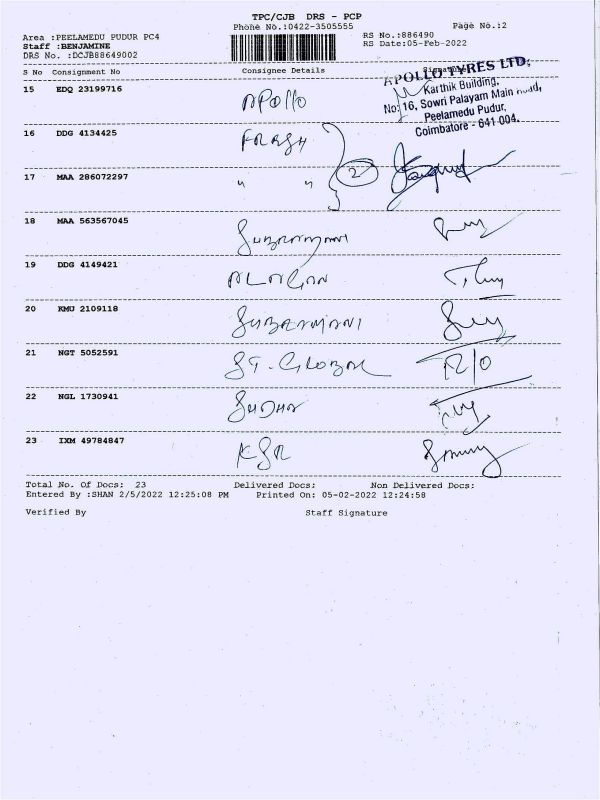 TPC/CJB DRS - PCP
Phone No.:0422-3505555 Page No.:2
Area :PEELAMEDU PUDUR PC4 RS No.:886490
Staff :BENJAMINE RS Date:05-Feb-2022
DRS No. :DCJB88649002
S No Consignment No Consignee Details
APOLLO TYRES LTD.
Karthik Building,
No: 16, Sowri Palayam Main Road,
Peelamedu Pudur,
Coimbatore - 641 004.
15 EDQ 23199716 APOllO
16 DDG 4134425
17 MAA 286072297 " " 2
18 MAA 563567045
19 DDG 4149421
20 KMU 2109118
21 NGT 5052591 ST. GLOBAL
22 NGL 1730941 SUDHA
23 IXM 49784847 KSR
Total No. Of Docs: 23 Delivered Docs: Non Delivered Docs:
Entered By :SHAN 2/5/2022 12:25:08 PM Printed On: 05-02-2022 12:24:58
Verified By Staff Signature